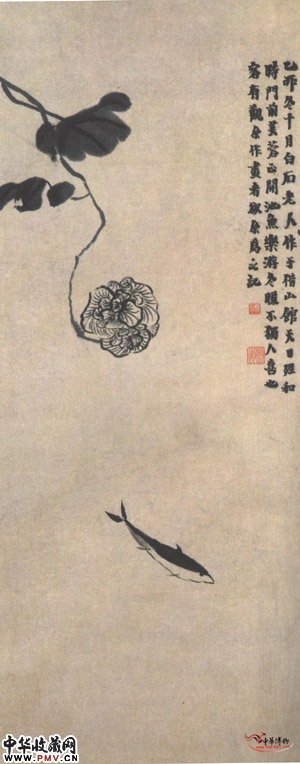 乙卯冬十月白石老人作于借山馆天日暄和
時門前芙蓉正開池魚樂游冬暖不獨人喜也
客有觀余作畫者欲余為之記
中华收藏网
www.PMV.CN
中華博物